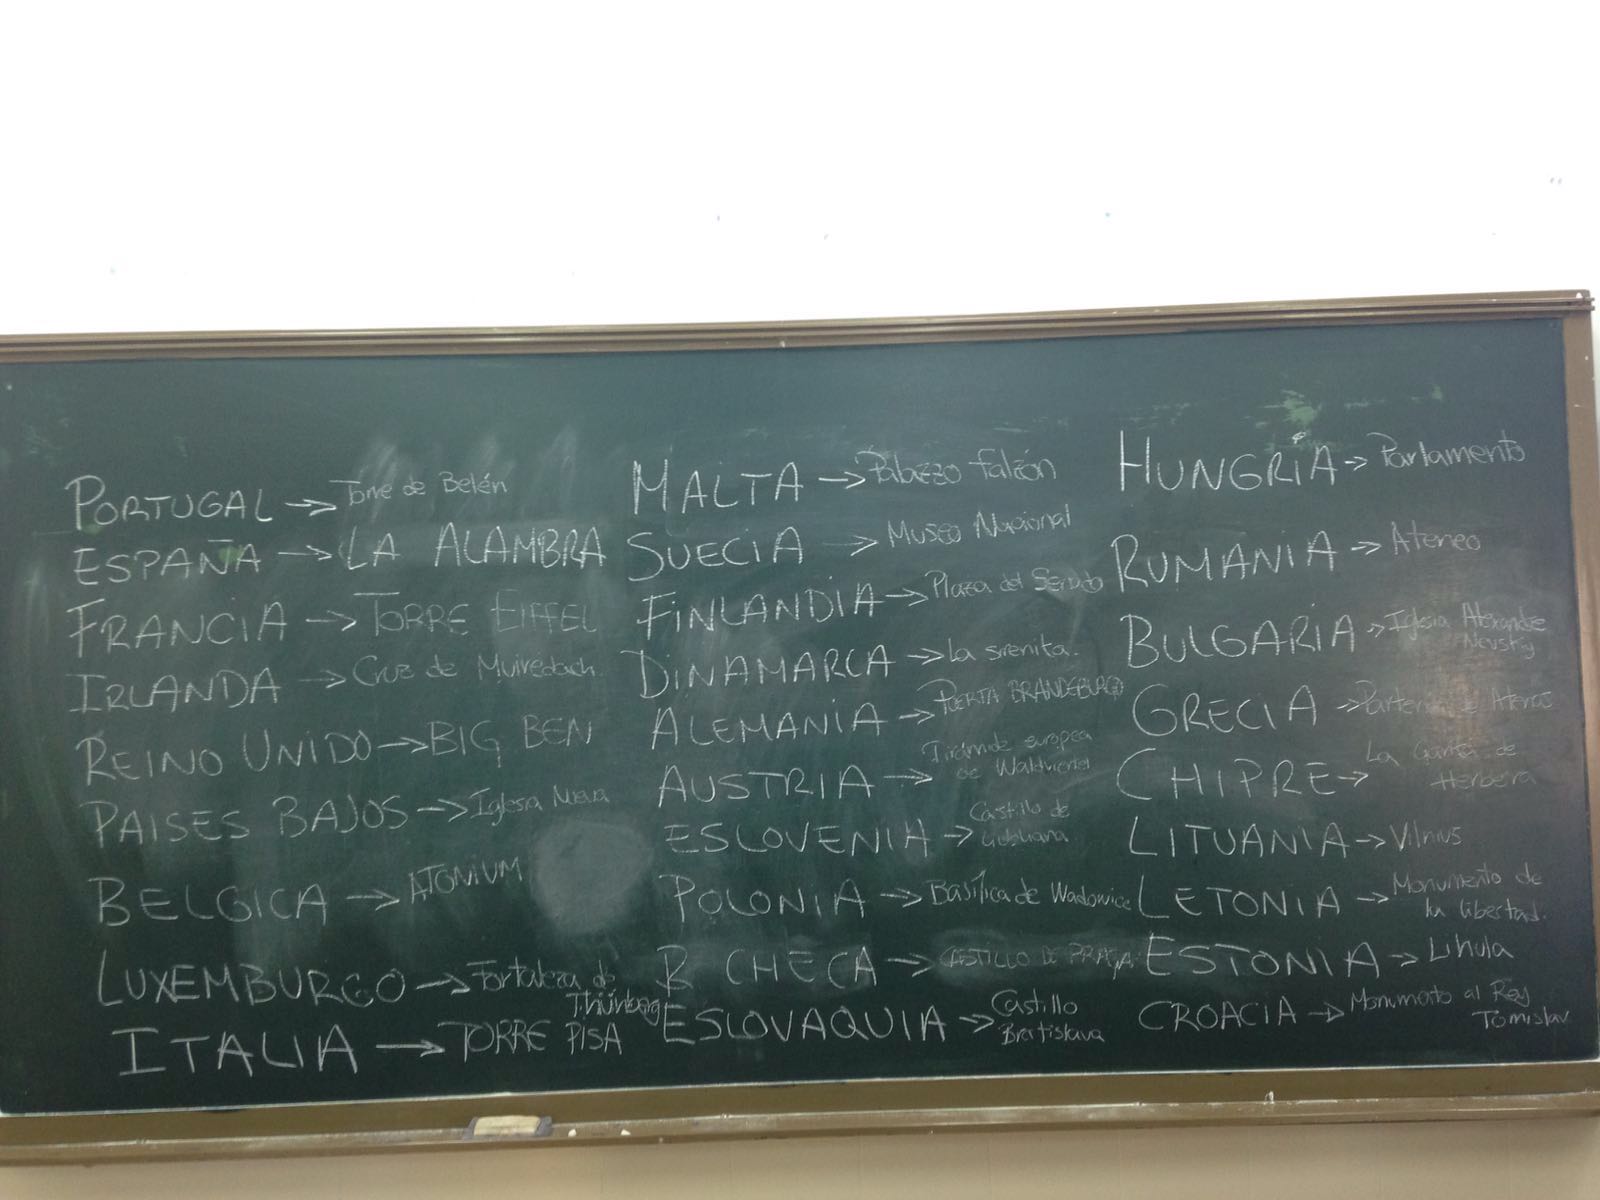 PORTUGAL → Torre de Belén
ESPAÑA → LA ALAMBRA
FRANCIA → TORRE EIFFEL
IRLANDA → Cruz de Muiredach
REINO UNIDO → BIG BEN
PAISES BAJOS → Iglesia Nueva
BELGICA → ATOMIUM
LUXEMBURGO → Fortaleza de
ITALIA → TORRE PISA
MALTA → Palazzo Falzón
SUECIA → Museo Nacional
FINLANDIA → Plaza del Senado
DINAMARCA → La sirenita.
ALEMANIA → PUERTA BRANDEBURGO
AUSTRIA → Pirámide europea
de Waldviertel
ESLOVENIA → Castillo de
POLONIA → Basílica de Wadowice
R CHECA → CASTILLO DE PRAGA
ESLOVAQUIA → Castillo
Bratislava
HUNGRIA → Parlamento
RUMANIA → Ateneo
BULGARIA → Iglesia Alexandre
Neusky
GRECIA → Atenas
CHIPRE → La de
LITUANIA → Vilnius
LETONIA → Monumento de
la libertad.
ESTONIA → Lihula
CROACIA → Monumento al Rey
Tomislav